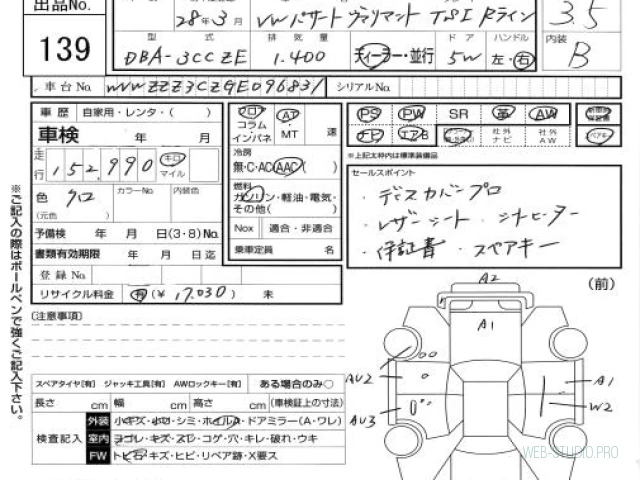 出品No.
139
28年3月
VWパサートヴァリアント TSI Rライン
3.5
型式
排気量
ドア
ハンドル
内装
DBA-3CCZE
1.400
ディーラー・並行
5W
左・右
B
車台No.
WVWZZZ3CZGE096831
シリアルNo.
車歴
自家用・レンタ・( )
車検
年 月
走行
152,990
キロ
マイル
色
クロ
(元色)
カラーNo.
内装色
予備検 年 月 日(3・8)No.
書類有効期限 年 月 日迄
登録No.
リサイクル料金 有(¥ 17,030) 未
フロア
コラム
インパネ
AT
・MT
速
冷房
無・C・AC・AAC( )
燃料
ガソリン・軽油・電気・
その他( )
Nox
適合・非適合
乗車定員 名
PS
PW
SR
革
AW
ナビ
エアB
社外ナビ
社外AW
スペアキー
※上記太枠内は標準装備品
セールスポイント
・ディスカバープロ
・レザーシート シートヒーター
・保証書 ・スペアキー
※ご記入の際はボールペンで強くご記入下さい。
(注意事項)
スペアタイヤ[有] ジャッキ工具[有] AWロックキー[有] ある場合のみ○
長さ cm 幅 cm 高さ cm (車検証上の寸法)
検査記入
外装
小キズ・小凹・シミ・ホイルA・ドアミラー(A・ワレ)
室内
ヨゴレ・キズ・スレ・コゲ・穴・キレ・破れ・ウキ
FW
トビ石・キズ・ヒビ・リペア跡・X要ス
(前)
A2
A1
AU2
AU3
A1
W2
WEB-STUDIO.PRO